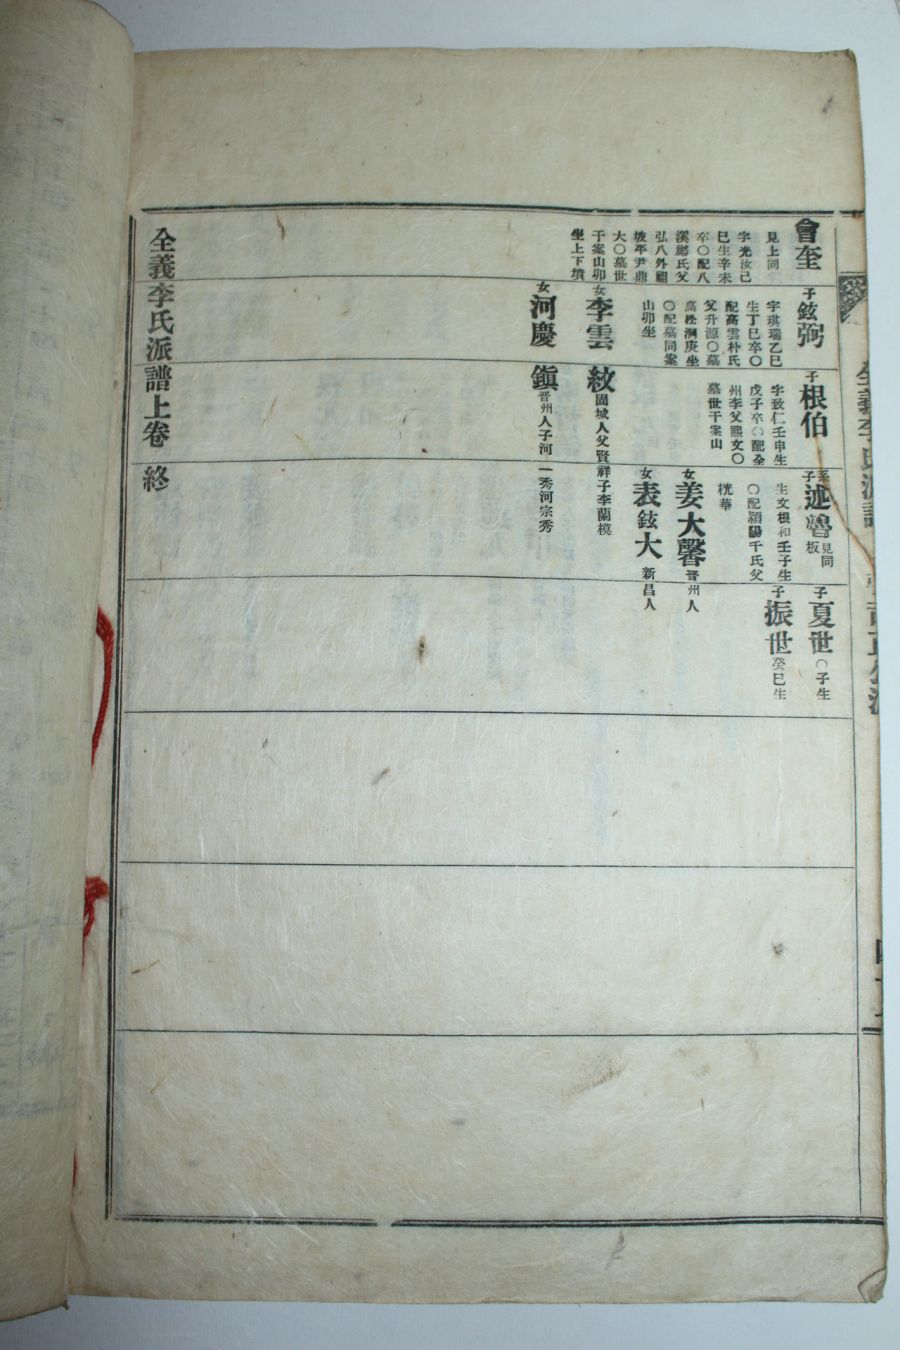 會奎
見上同
字光汝己
巳生辛未
卒〇配八
溪鄭氏父
弘八外祖
坡平尹鼎
大〇墓世
干案山卯
坐上下墳
子鉉弼
字琪瑞乙巳
生丁巳卒〇
配高雲朴氏
父升源〇墓
高松洞庚坐
〇配墓同案
山卯坐
女李雲紋
固城人父賢祥子李蘭模
女河慶鎭
晋州人子河一秀河宗秀
子根伯
字致仁壬申生
戊子卒〇配全
州李父熙文〇
墓世干案山
系子述魯
見同板
生父根和壬子生
〇配穎陽千氏父
桄華
女姜大馨
晋州人
女表鉉大
新昌人
子夏世
〇子生
子振世
癸巳生
全義李氏派譜上卷 終
全義李氏派譜